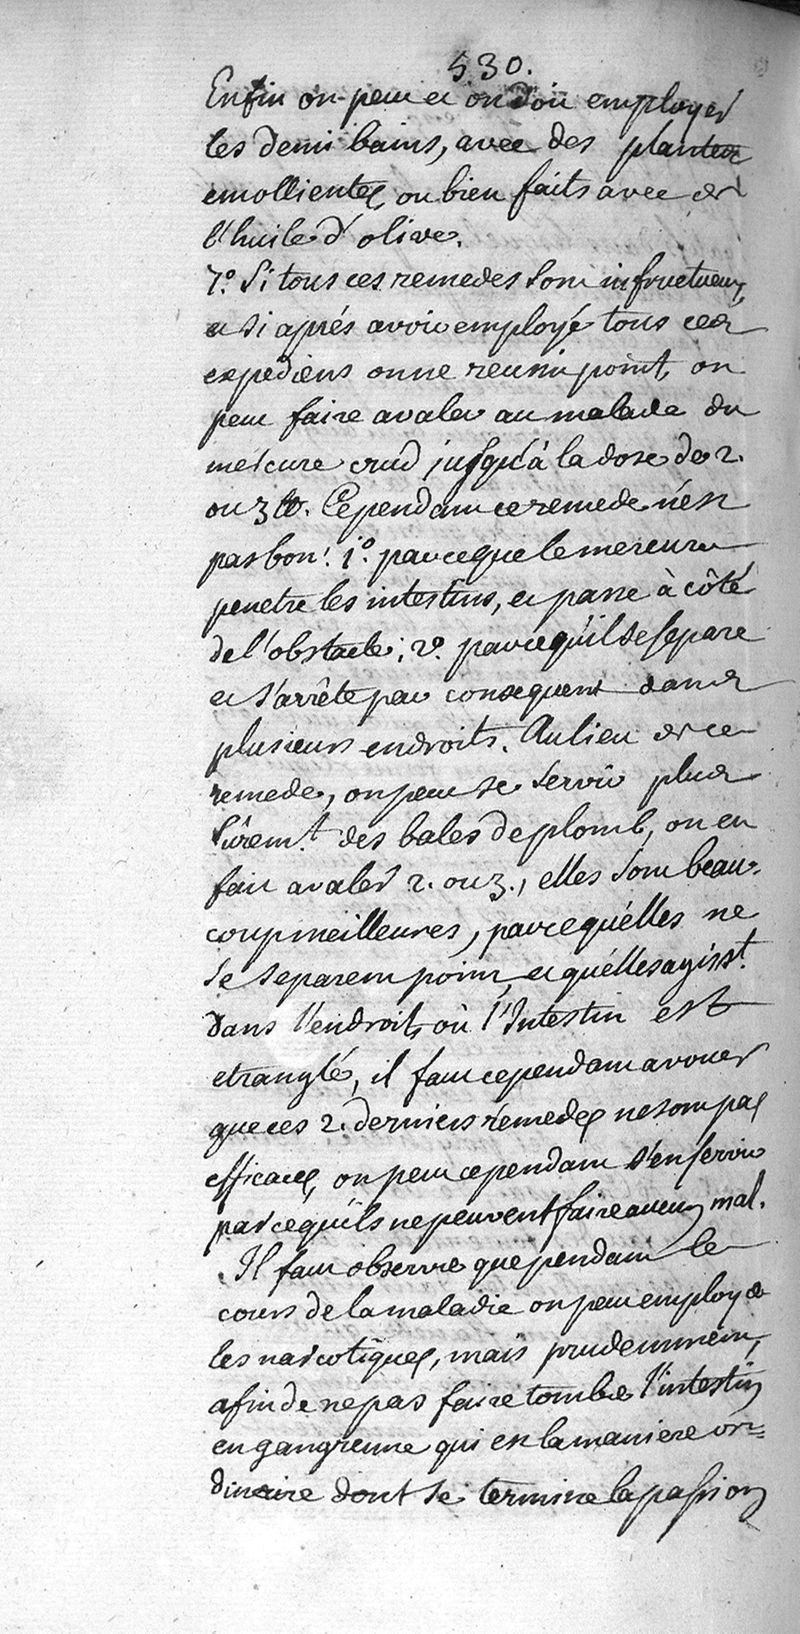 530.
Enfin on peut et on doit employer
les demi bains, avec des plantes
emollientes, ou bien faits avec de
l'huile d'olive.
7.º Si tous ces remedes sont infructueux,
et si aprés avoir employé tous ces
expediens on ne reussit point, on
peut faire avaler au malade du
mercure crud jusqu'à la dose de 2.
ou 3 lb. Cependant ce remede n'est
pas bon: 1.º parceque le mercure
penetre les intestins, et passe à côté
de l'obstacle; 2.º parcequ'il se separe
et s'arrête par consequent dans
plusieurs endroits. Au lieu de ce
remede, on peut se servir plus
sûrem.t des bales de plomb, on en
fait avaler 2. ou 3., elles sont beau-
coup meilleures, parcequ'élles ne
se separent point, et qu'élles agisst.
dans l'endroit, où l'Intestin est
etranglé, il faut cependant avouer
que ces 2. derniers remedes ne sont pas
efficaces, on peut cependant s'en servir
parcequ'ils ne peuvent faire aucun mal.
Il faut observre que pendant le
cours de la maladie on peut employer
les narcotiques, mais prudemment,
afin de ne pas faire tomber l'intestin
en gangrenne qui est la maniere or=
dinaire dont se termine la passion